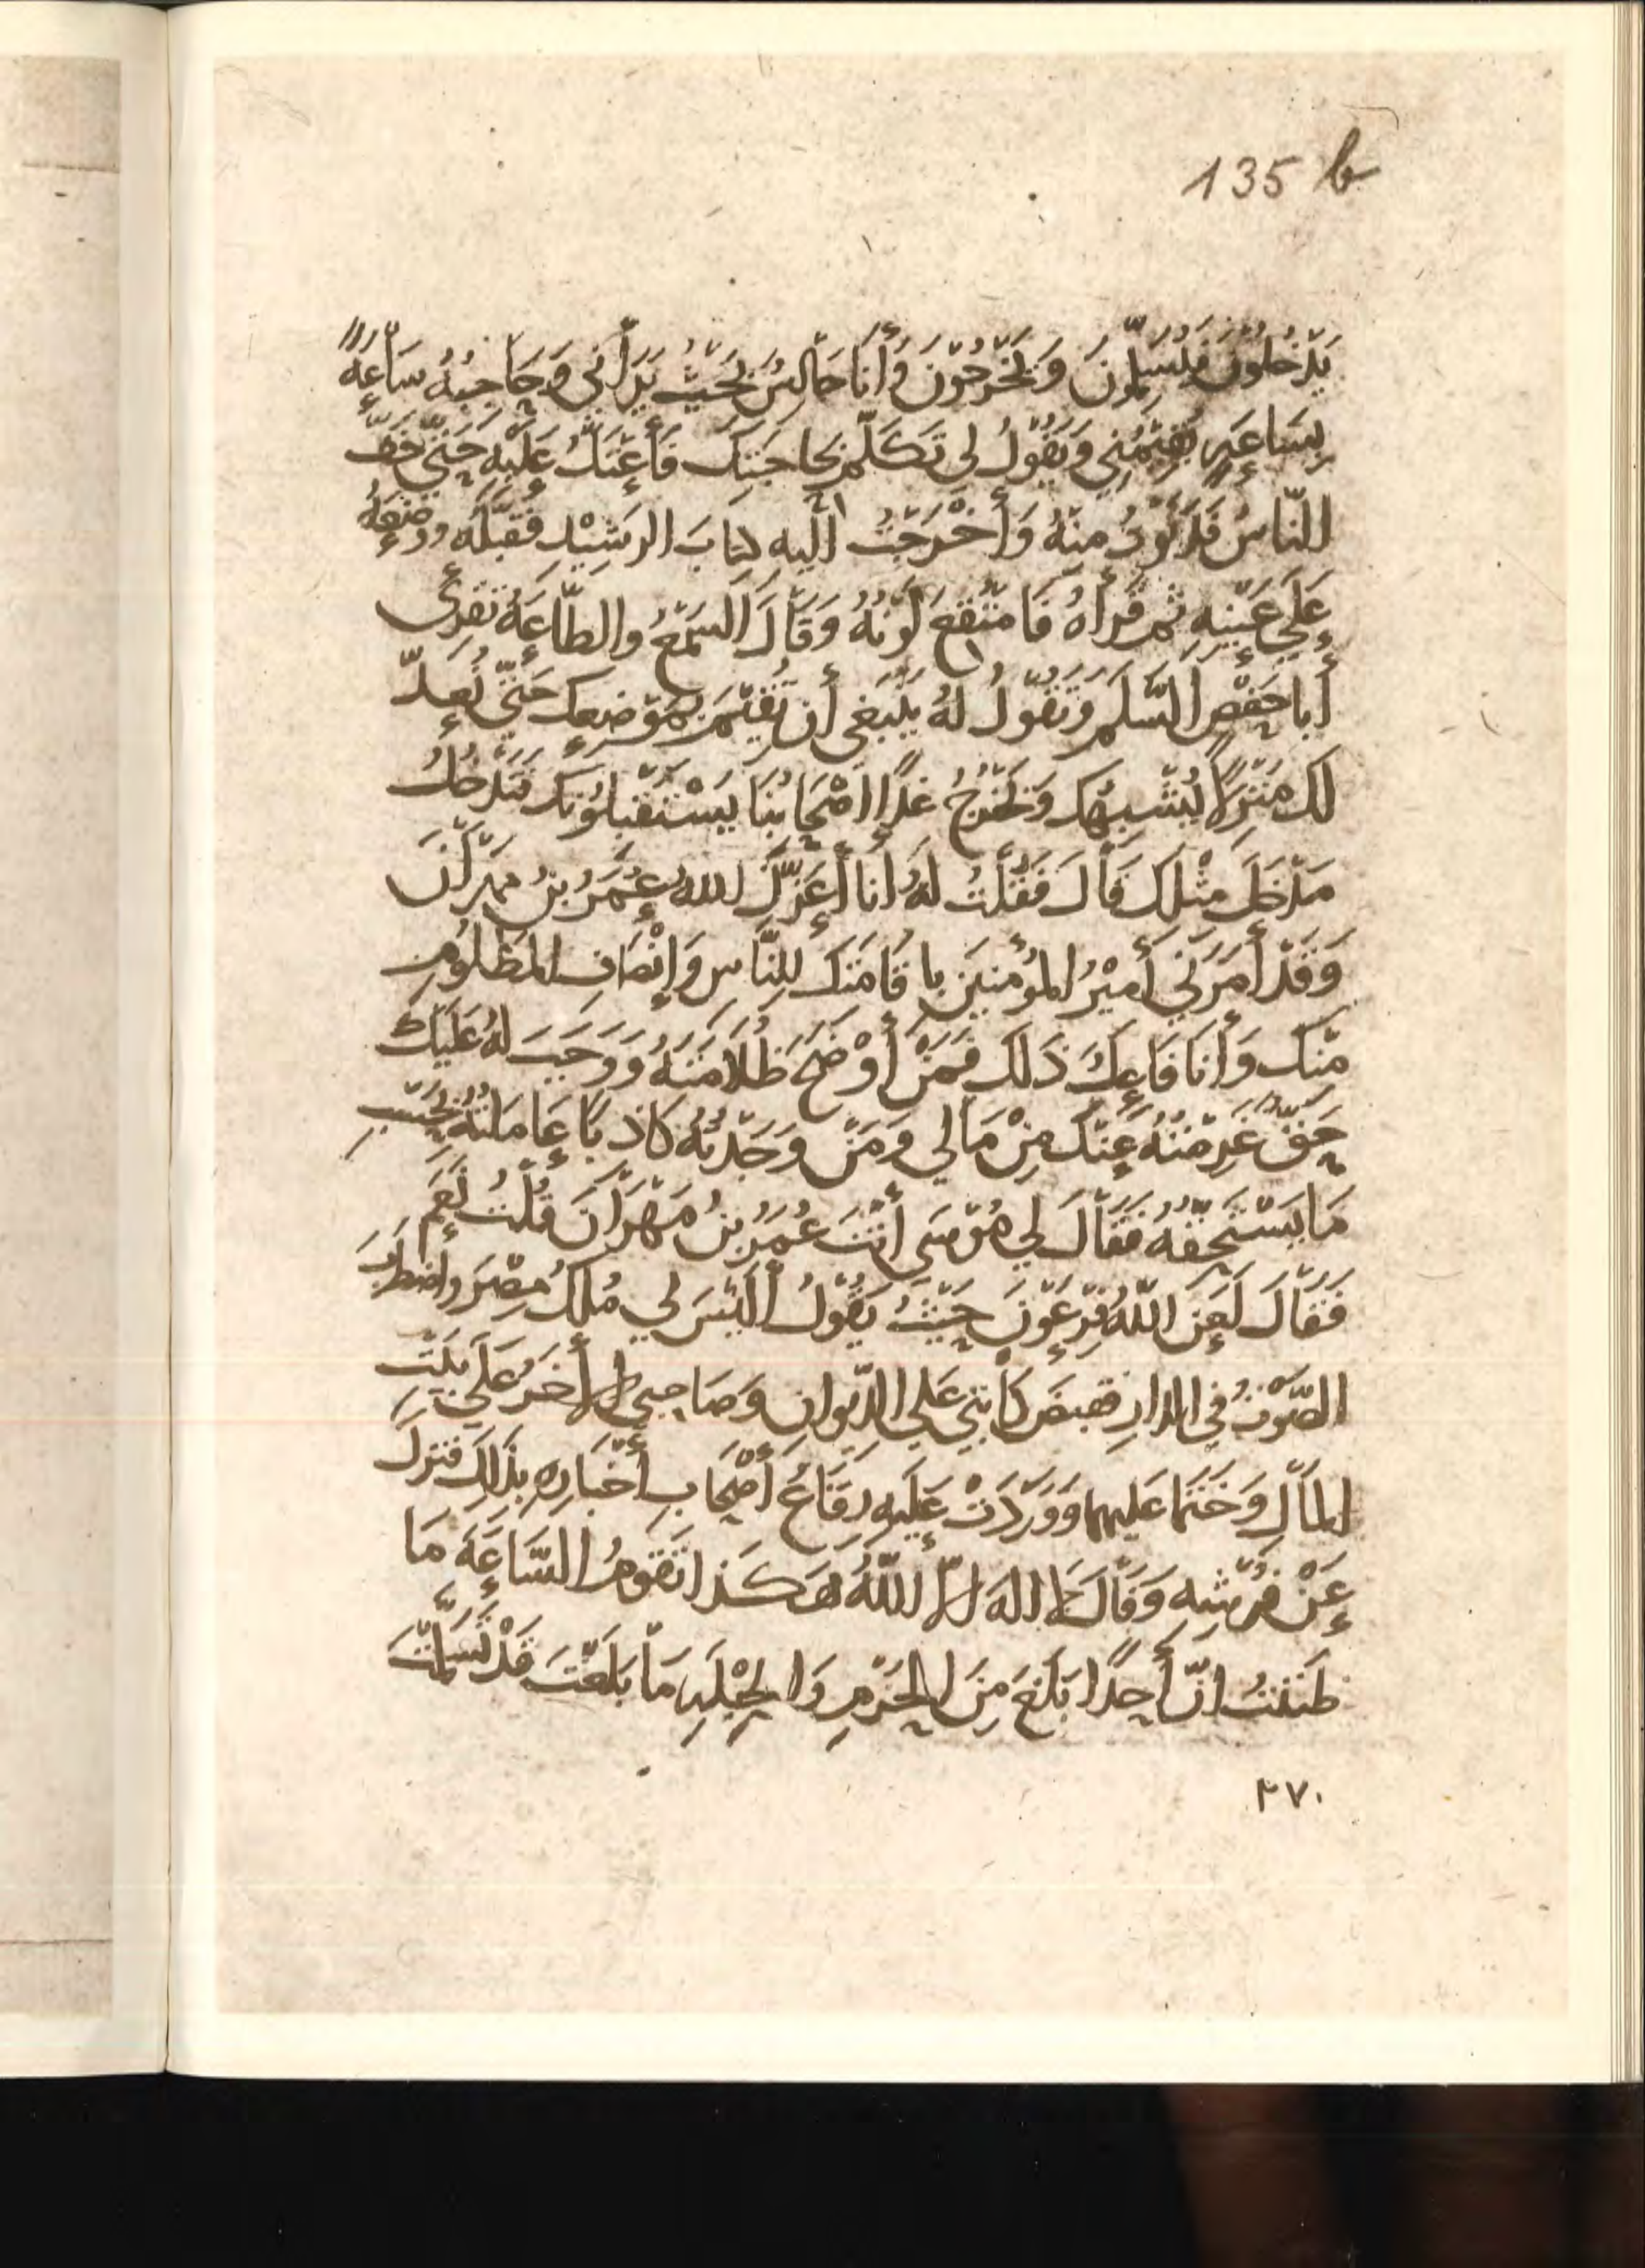 135 b
يَدْخُلُوْنَ فَيُسَلِّمُونَ وَيَخْرُجُوْنَ وَأَنَا جَالِسٌ بِحَيْثُ يَرَانِي وَحَاجِبُهُ سَاعَةً
بِسَاعَةٍ يُقِيْمُنِي وَيَقُوْلُ لِي تَكَلَّم بِحَاجَتِكَ فَأَعْتَلُّ عَلَيْهِ حَتَّى خَفَّ
النَّاسُ فَدَنَوْتُ مِنْهُ وَأَخْرَجْتُ إِلَيْهِ كِتَابَ الرَشِيْدِ فَقَبَّلَهُ وَوَضَعَهُ
عَلَى عَيْنِهِ ثُمَّ قَرَأَهُ فَامْتُقِعَ لَوْنُهُ وَقَالَ السَمْعُ وَالطَّاعَةُ تُقْرِئُ
أَبَا حَفْصٍ السَّلَمَ وَتَقُوْلُ لَهُ يَنْبَغِي أَن تُقِيْمَ بِمَوْضِعِكَ حَتَّى نُعِدَّ
لَكَ مَنْزِلًا يُشْبِهُكَ وَيَخْرُجُ غَدًا أَصْحَابُنَا يَسْتَقْبِلُوْنَكَ فَتَدْخُلُ
مَدْخَلَ مِثْلِكَ قَالَ فَقُلْتُ لَهُ أَنَا أَعَزَّكَ اللهُ عُمَرُ بنُ مِهْرَانَ
وَقَدْ أَمَرَنِي أَمِيْرُ المُؤْمِنِيْنَ بِاقَامَتِكَ لِلنَّاسِ وَإِنْصَافِ المَظْلُومِ
مِنْكَ وَأَنَا فَاعِلٌ ذَلِكَ فَمَنْ أَوْضَحَ ظُلَامَتَهُ وَوَجَبَ لَهُ عَلَيْكَ
حَقٌّ غَرِمْتُهُ عَنْكَ مِنْ مَالِي وَمَنْ وَجَدْتُهُ كَاذِبًا عَامَلْتُهُ بِحَسَبِ
مَا يَسْتَحِقُّهُ فَقَالَ لِي مُوْسَى أَنْتَ عُمَرُ بنُ مِهْرَانَ قُلْتُ نَعَم
فَقَالَ لَعَنَ اللهُ فِرْعَوْنَ حَيْثُ يَقُوْلُ أَلَيْسَ لِي مُلْكُ مِصْرَ وَاضْطَرَبَ
الصَّوْتُ فِي الدَارِ فَقَبَضَ كَاتِبِي عَلَى الدِّيْوَانِ وَصَاحِبِي الآخَرُ عَلَى بَيْتِ
المَالِ وَخَتَمَا عَلَيْهِمَا وَوَرَدَتْ عَلَيْهِ رِقَاعُ أَصْحَابِ أَخْبَارِهِ بِذَلِكَ فَنَزَلَ
عَنْ فُرْشِهِ وَقَالَ لَا اِلَهَ اِلَّا اللهُ هَكَذَا تَقُوْمُ السَّاعَةُ مَا
ظَنَنْتُ اَنَّ أَحَدًا بَلَغَ مِنَ الحَزْمِ وَالحِيْلَةِ مَا بَلَغْتَ قَدْ تَسَلَّمْتَ
٢٧٠